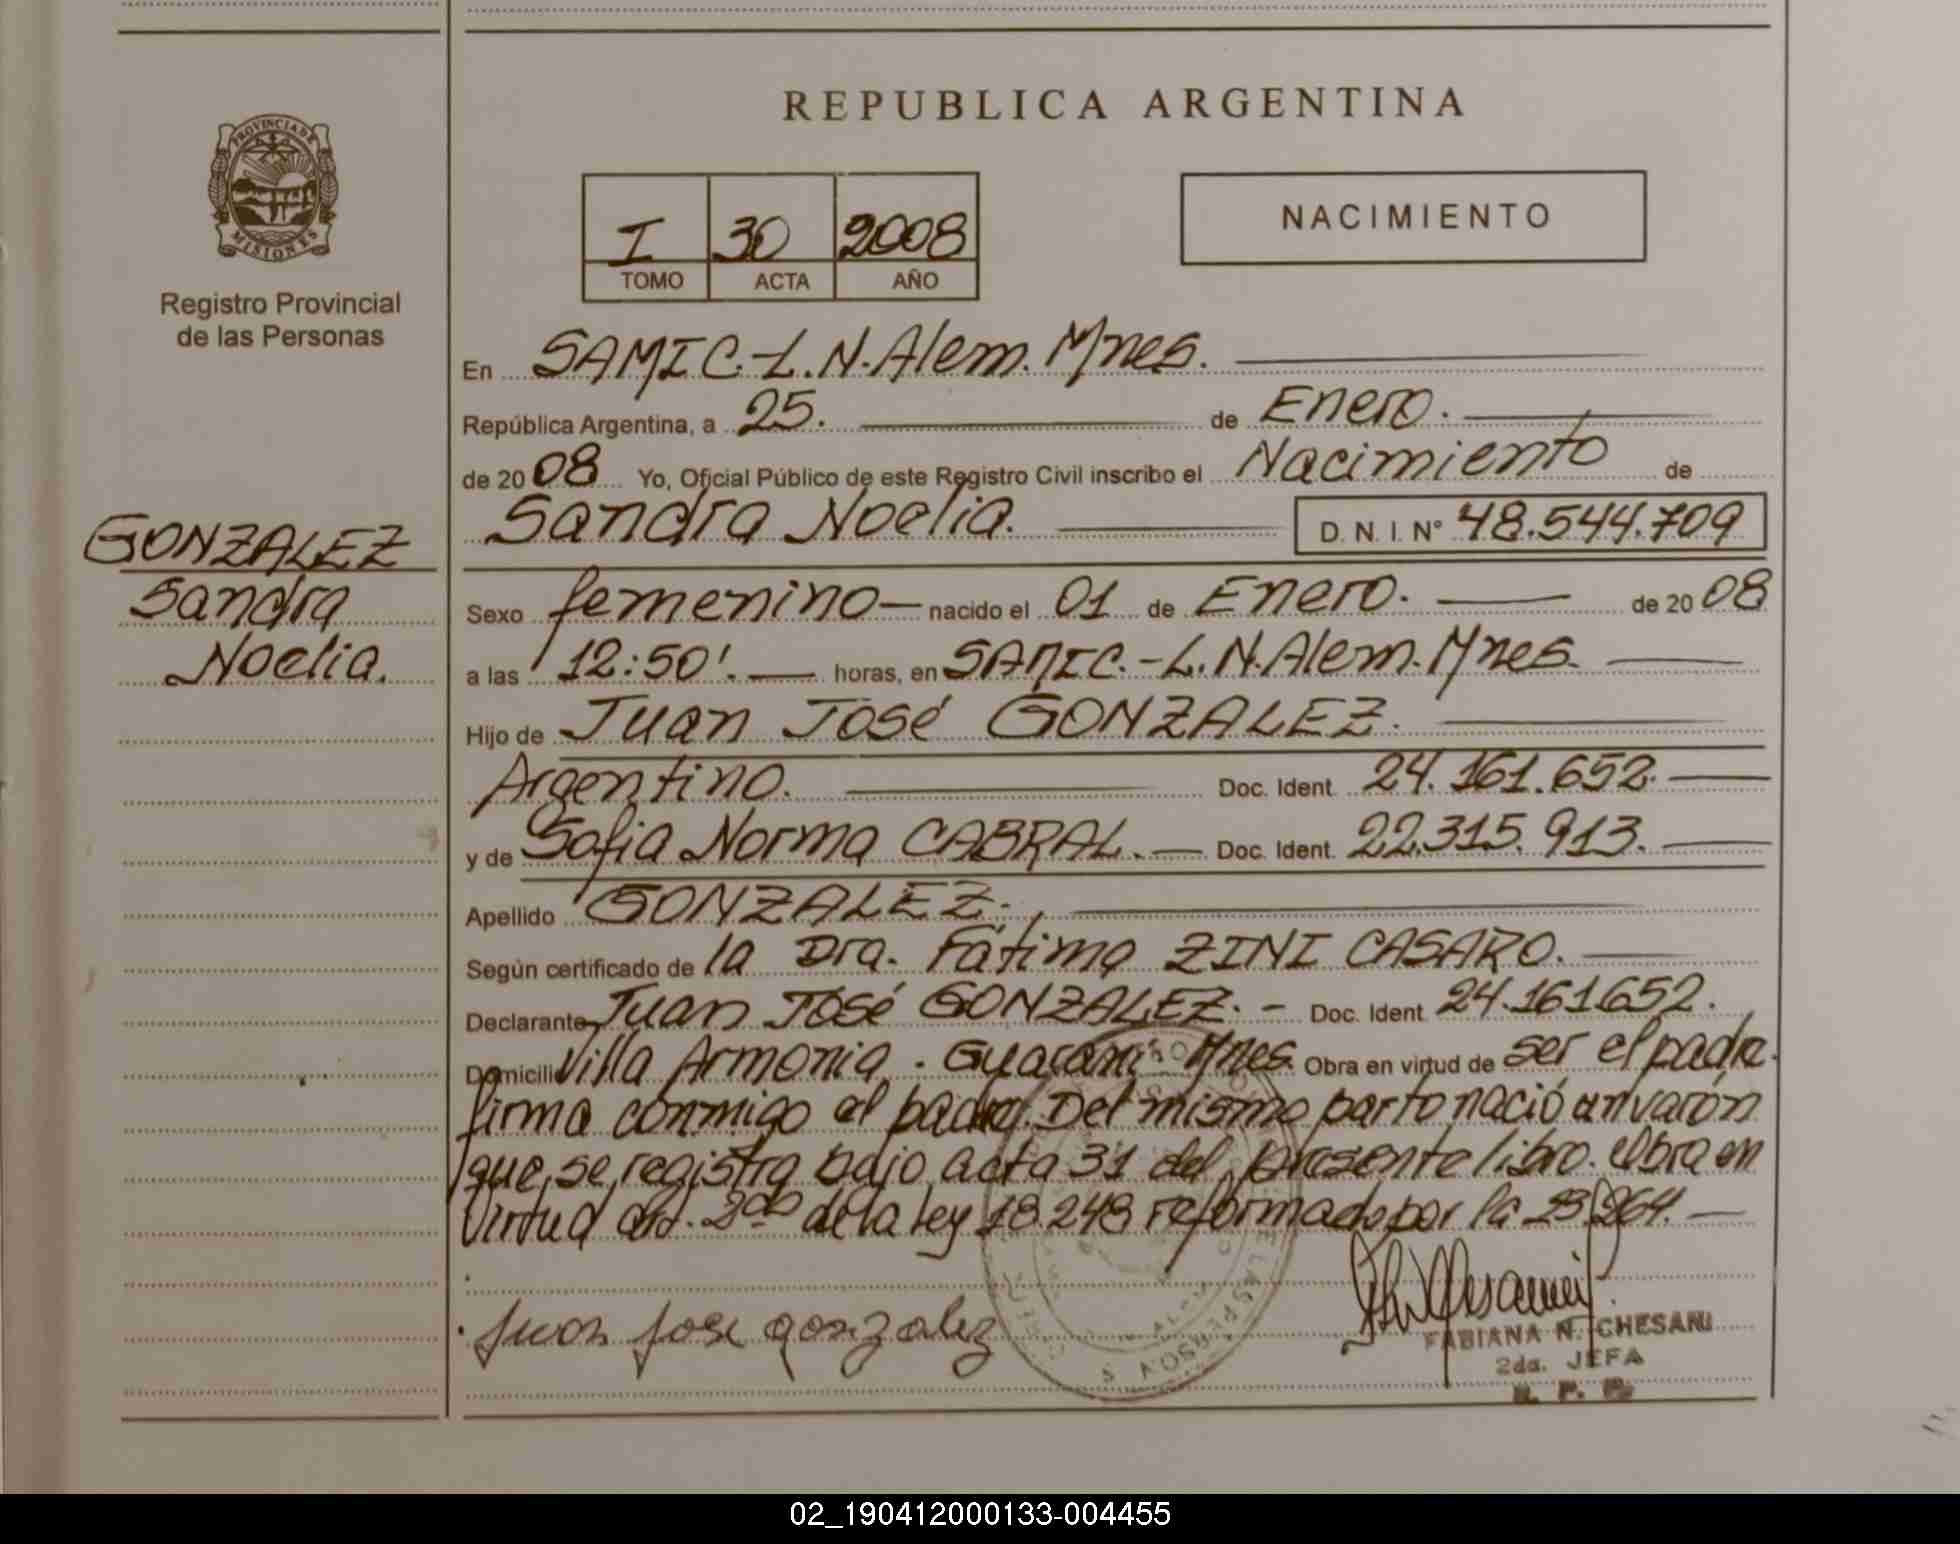 REPUBLICA ARGENTINA
PROVINCIA DE
MISIONES
Registro Provincial
de las Personas
I 30 2008
TOMO ACTA AÑO
NACIMIENTO
En SAMIC.-L.N.Alem. Mnes.
República Argentina, a 25. de Enero.
de 2008 Yo, Oficial Público de este Registro Civil inscribo el Nacimiento de
Sandra Noelia. D. N. I. N° 48.544.709
GONZALEZ
Sandra
Noelia.
Sexo femenino— nacido el 01 de Enero. de 2008
a las 12:50'. horas, en SAMIC.-L.N.Alem. Mnes.
Hijo de Juan José GONZALEZ.
Argentino. Doc. Ident. 24.161.652.
y de Sofia Norma CABRAL. Doc. Ident. 22.315.913.
Apellido GONZALEZ.
Según certificado de la Dra. Fátima ZINI CASARO.
Declarante Juan José GONZALEZ. - Doc. Ident. 24.161.652.
Domicilio Villa Armonia. Guarani Mnes. Obra en virtud de ser el padre.
firma conmigo el padre. Del mismo parto nació un varón
que se registra bajo acta 31 del presente libro. Obra en
Virtud art. 2do de la ley 18.248 reformado por la 23.264.
Juan jose gonzalez
FABIANA N. CHESANI
2da. JEFA
R. P. P.
02_190412000133-004455